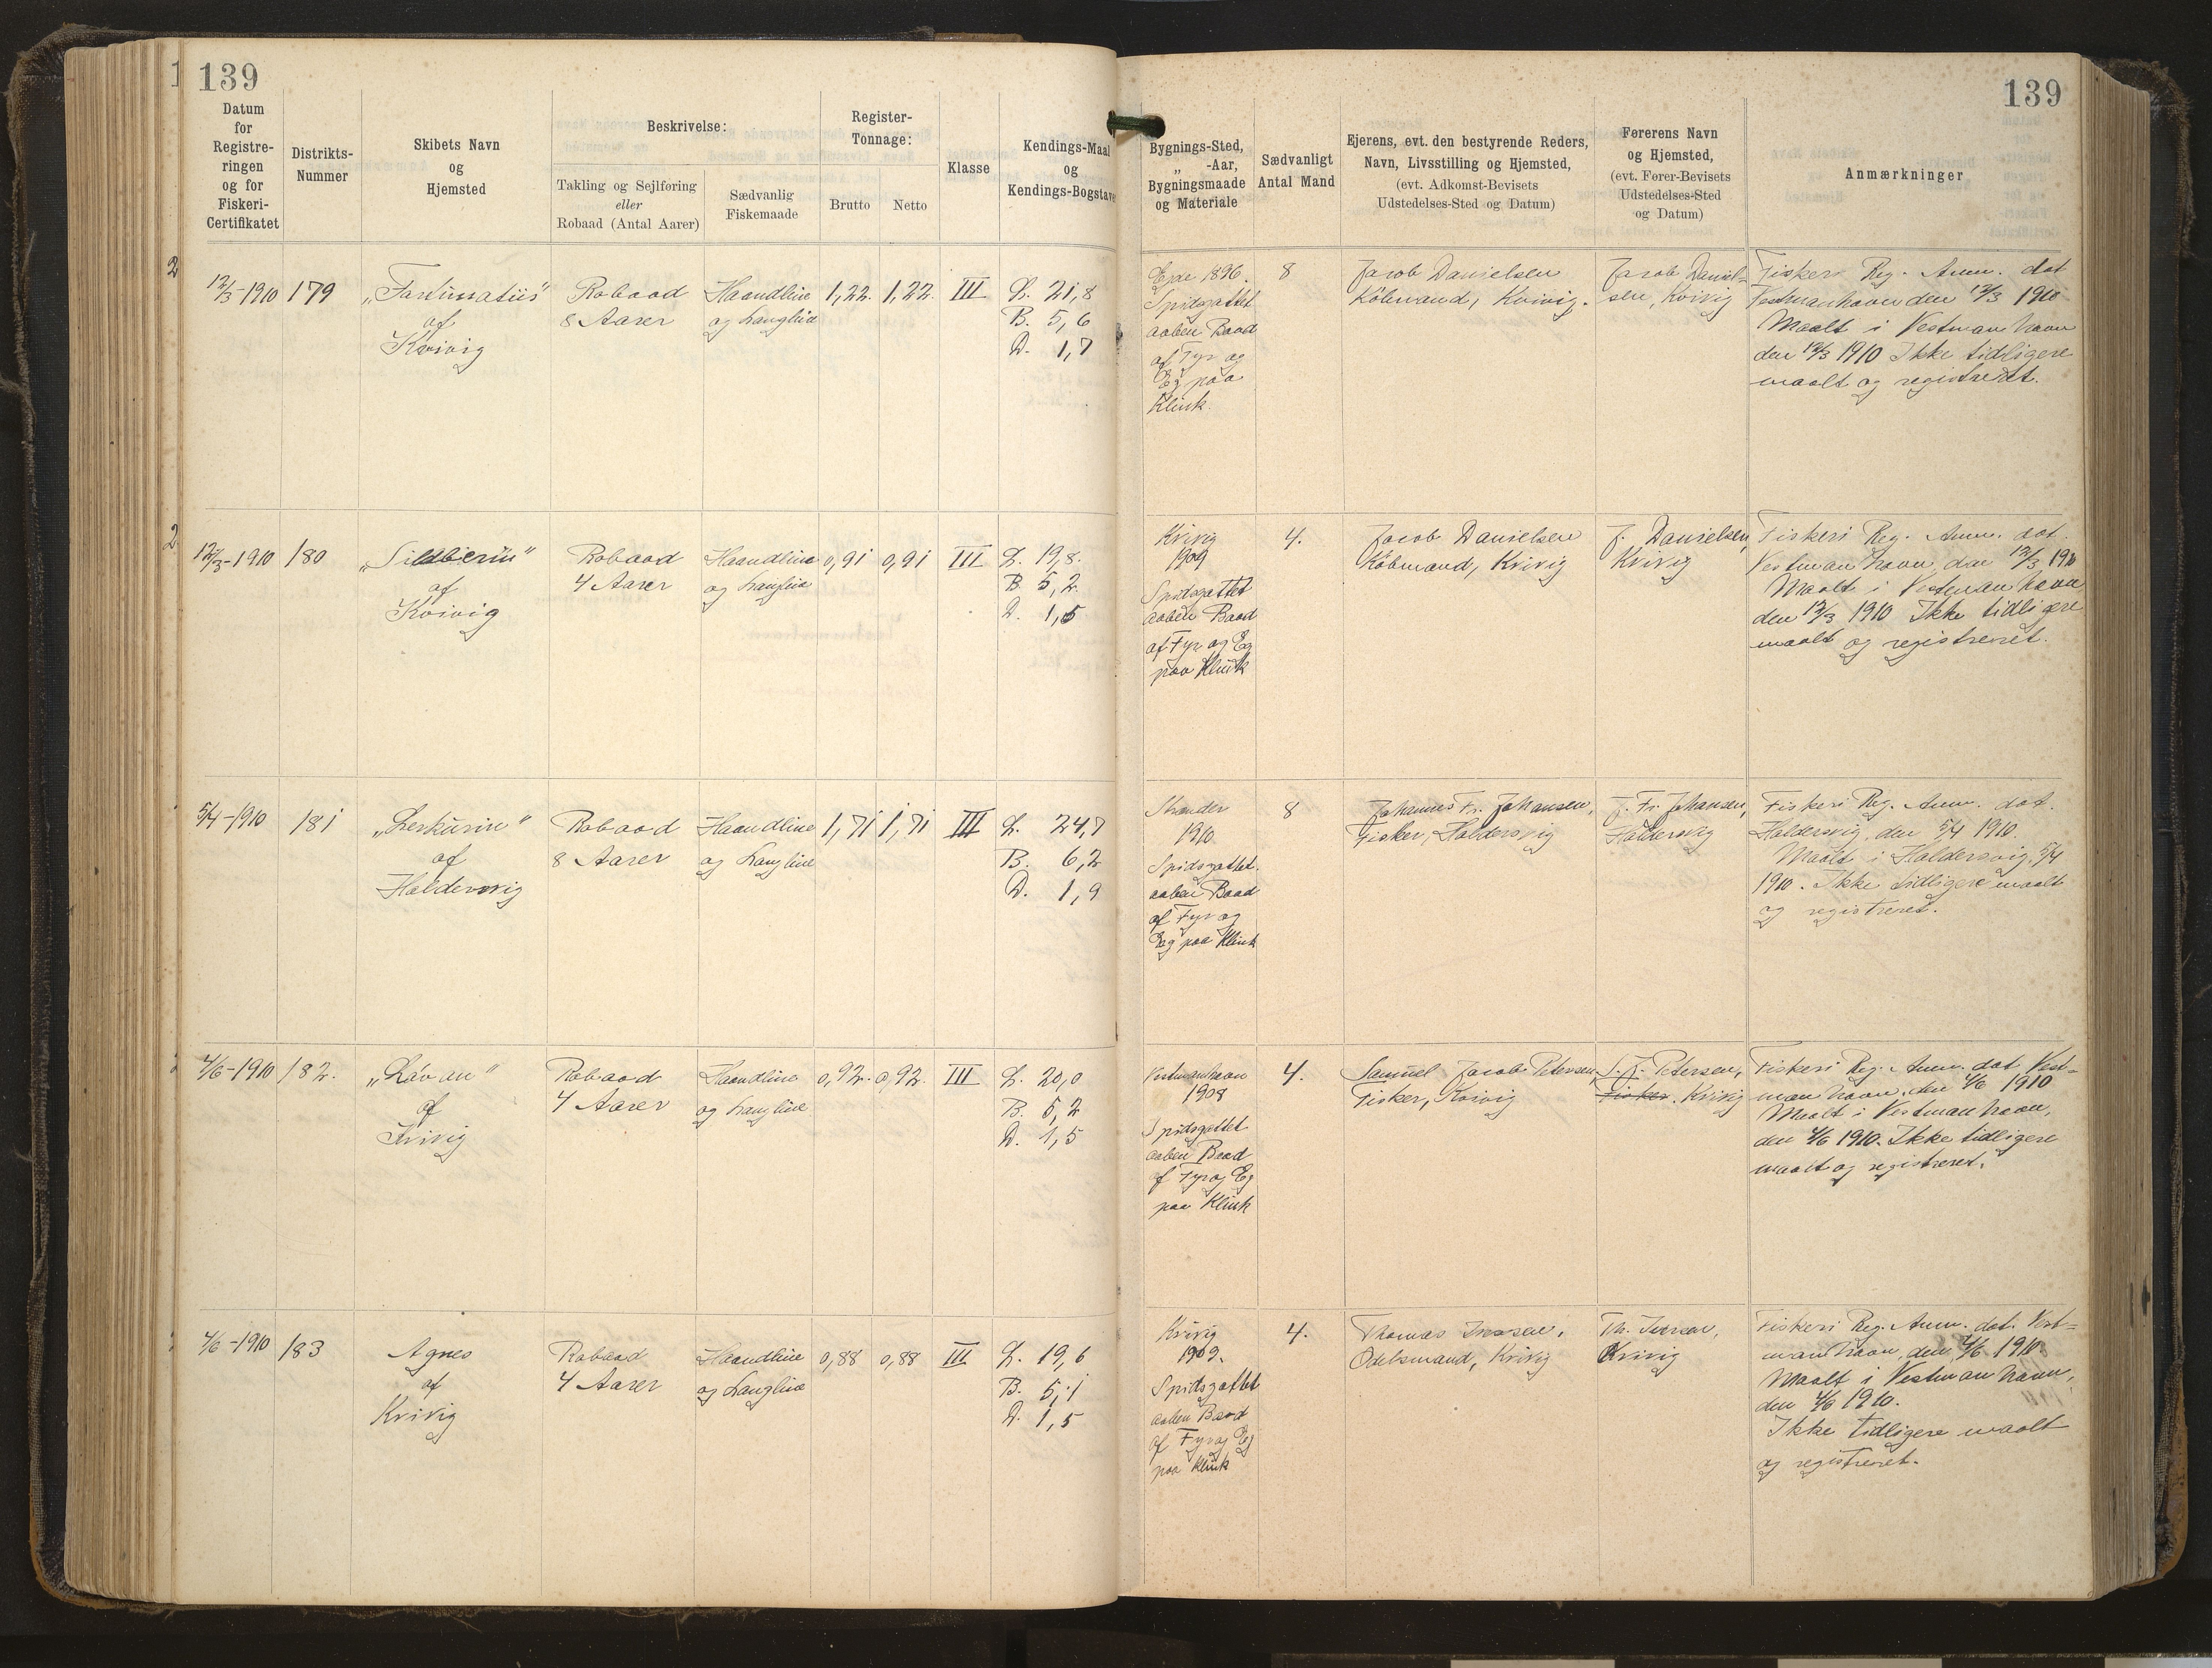 139
139
Datum for Registreringen og for Fiskeri-Certifikatet
Distrikts-Nummer
Skibets Navn og Hjemsted
Beskrivelse:
Takling og Sejlføring eller Robaad (Antal Aarer)
Sædvanlig Fiskemaade
Register-Tonnage:
Brutto
Netto
Klasse
Kendings-Maal og Kendings-Bogstaver
Bygnings-Sted, „ -Aar, Bygningsmaade og Materiale
Sædvanligt Antal Mand
Ejerens, evt. den bestyrende Reders, Navn, Livsstilling og Hjemsted, (evt. Adkomst-Bevisets Udstedelses-Sted og Datum)
Førerens Navn og Hjemsted, (evt. Fører-Bevisets Udstedelses-Sted og Datum)
Anmærkninger
12/3-1910
179
„Fortunatus"
af
Kvivig
Robaad
8 Aarer
Haandline
og Langline
1,22.
1,22.
III
L. 21,8
B. 5,6
D. 1,7
Ejde 1896.
Spidsgattet
aaben Baad
af Fyr og
Eg paa
Klink.
8
Jacob Danielsen
Købmand, Kvivig.
Jacob Daniel=
sen, Kvivig
Fiskeri Reg. Anm. dat
Vestmanhavn den 12/3 1910
Maalt i Vestmanhavn
den 12/3 1910 Ikke tidligere
maalt og registreret.
12/3-1910
180
„Sildberin"
af
Kvivig
Robaad
4 Aarer
Haandline
og Langline
0,91
0,91
III
L. 19,8.
B 5,2.
D. 1,5
Kvivig
1909
Spidsgattet
aaben Baad
af Fyr og Eg
paa Klink
4.
Jacob Danielsen
Købmand, Kvivig
J. Danielsen,
Kvivig
Fiskeri Reg. Anm. dat.
Vestmanhavn, den 12/3 1910
Maalt i Vestmanhavn
den 12/3 1910 Ikke tidligere
maalt og registreret.
5/4-1910
181
„Lerkurin"
af
Haldersvig
Robaad
8 Aarer
Haandline
og Langline
1,71
1,71
III
L. 24,7
B. 6,2
D. 1,9
Strander
1910
Spidsgattet.
aaben Baad
af Fyr og
Eg paa Klink
8
Johannes Fr. Johansen,
Fisker, Haldersvig
J. Fr. Johansen,
Haldersvig
Fiskeri Reg. Anm. dat.
Haldersvig, den 5/4 1910.
Maalt i Haldersvig, 5/4
1910. Ikke tidligere maalt
og registreret.
4/6-1910
182.
„Lávan"
af
Kvivig
Robaad
4 Aarer
Haandline
og Langline
0,92.
0,92.
III
L. 20,0
B. 5,2
D. 1,5
Vestmanhavn
1908
Spidsgattet
aaben Baad
af Fyr og Eg
paa Klink
4.
Samuel Jacob Petersen,
Fisker, Kvivig
S. J. Petersen,
Fisker. Kvivig
Fiskeri Reg. Anm. dat Vest=
manhavn, den 4/6 1910
Maalt i Vestmanhavn,
den 4/6 1910. Ikke tidligere
maalt og registreret.
4/6-1910
183
Agnes
af
Kvivig
Robaad
4 Aarer
Haandline
og Langline
0,88
0,88
III
L. 19,6
B. 5,1
D. 1,5
Kvivig
1909.
Spidsgattet
aaben Baad
af Fyr og Eg
paa Klink
4.
Thomas Iversen,
Odelsmand, Kvivig
Th. Iversen,
Kvivig
Fiskeri Reg. Anm. dat. Vest=
manhavn, den 4/6 1910
Maalt i Vestmanhavn,
den 4/6 1910.
Ikke tidligere maalt
og registreret.